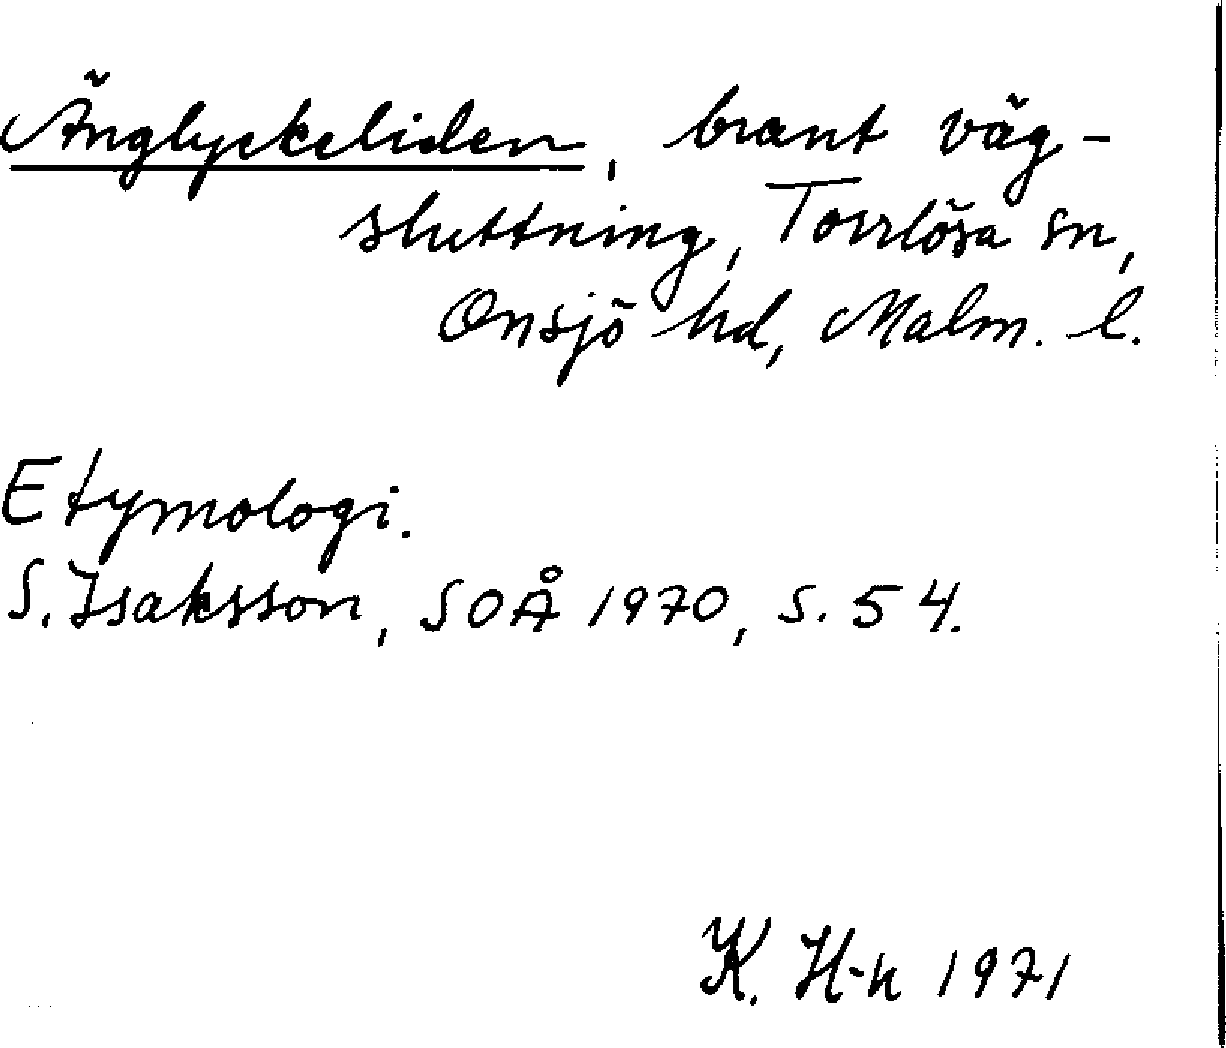 Änglyckeliden, brant väg-
sluttning, Torrlösa sn,
Onsjö hd, Malm. l.
Etymologi.
S. Isaksson, SOÅ 1970, s. 54.
K. H-n 1971